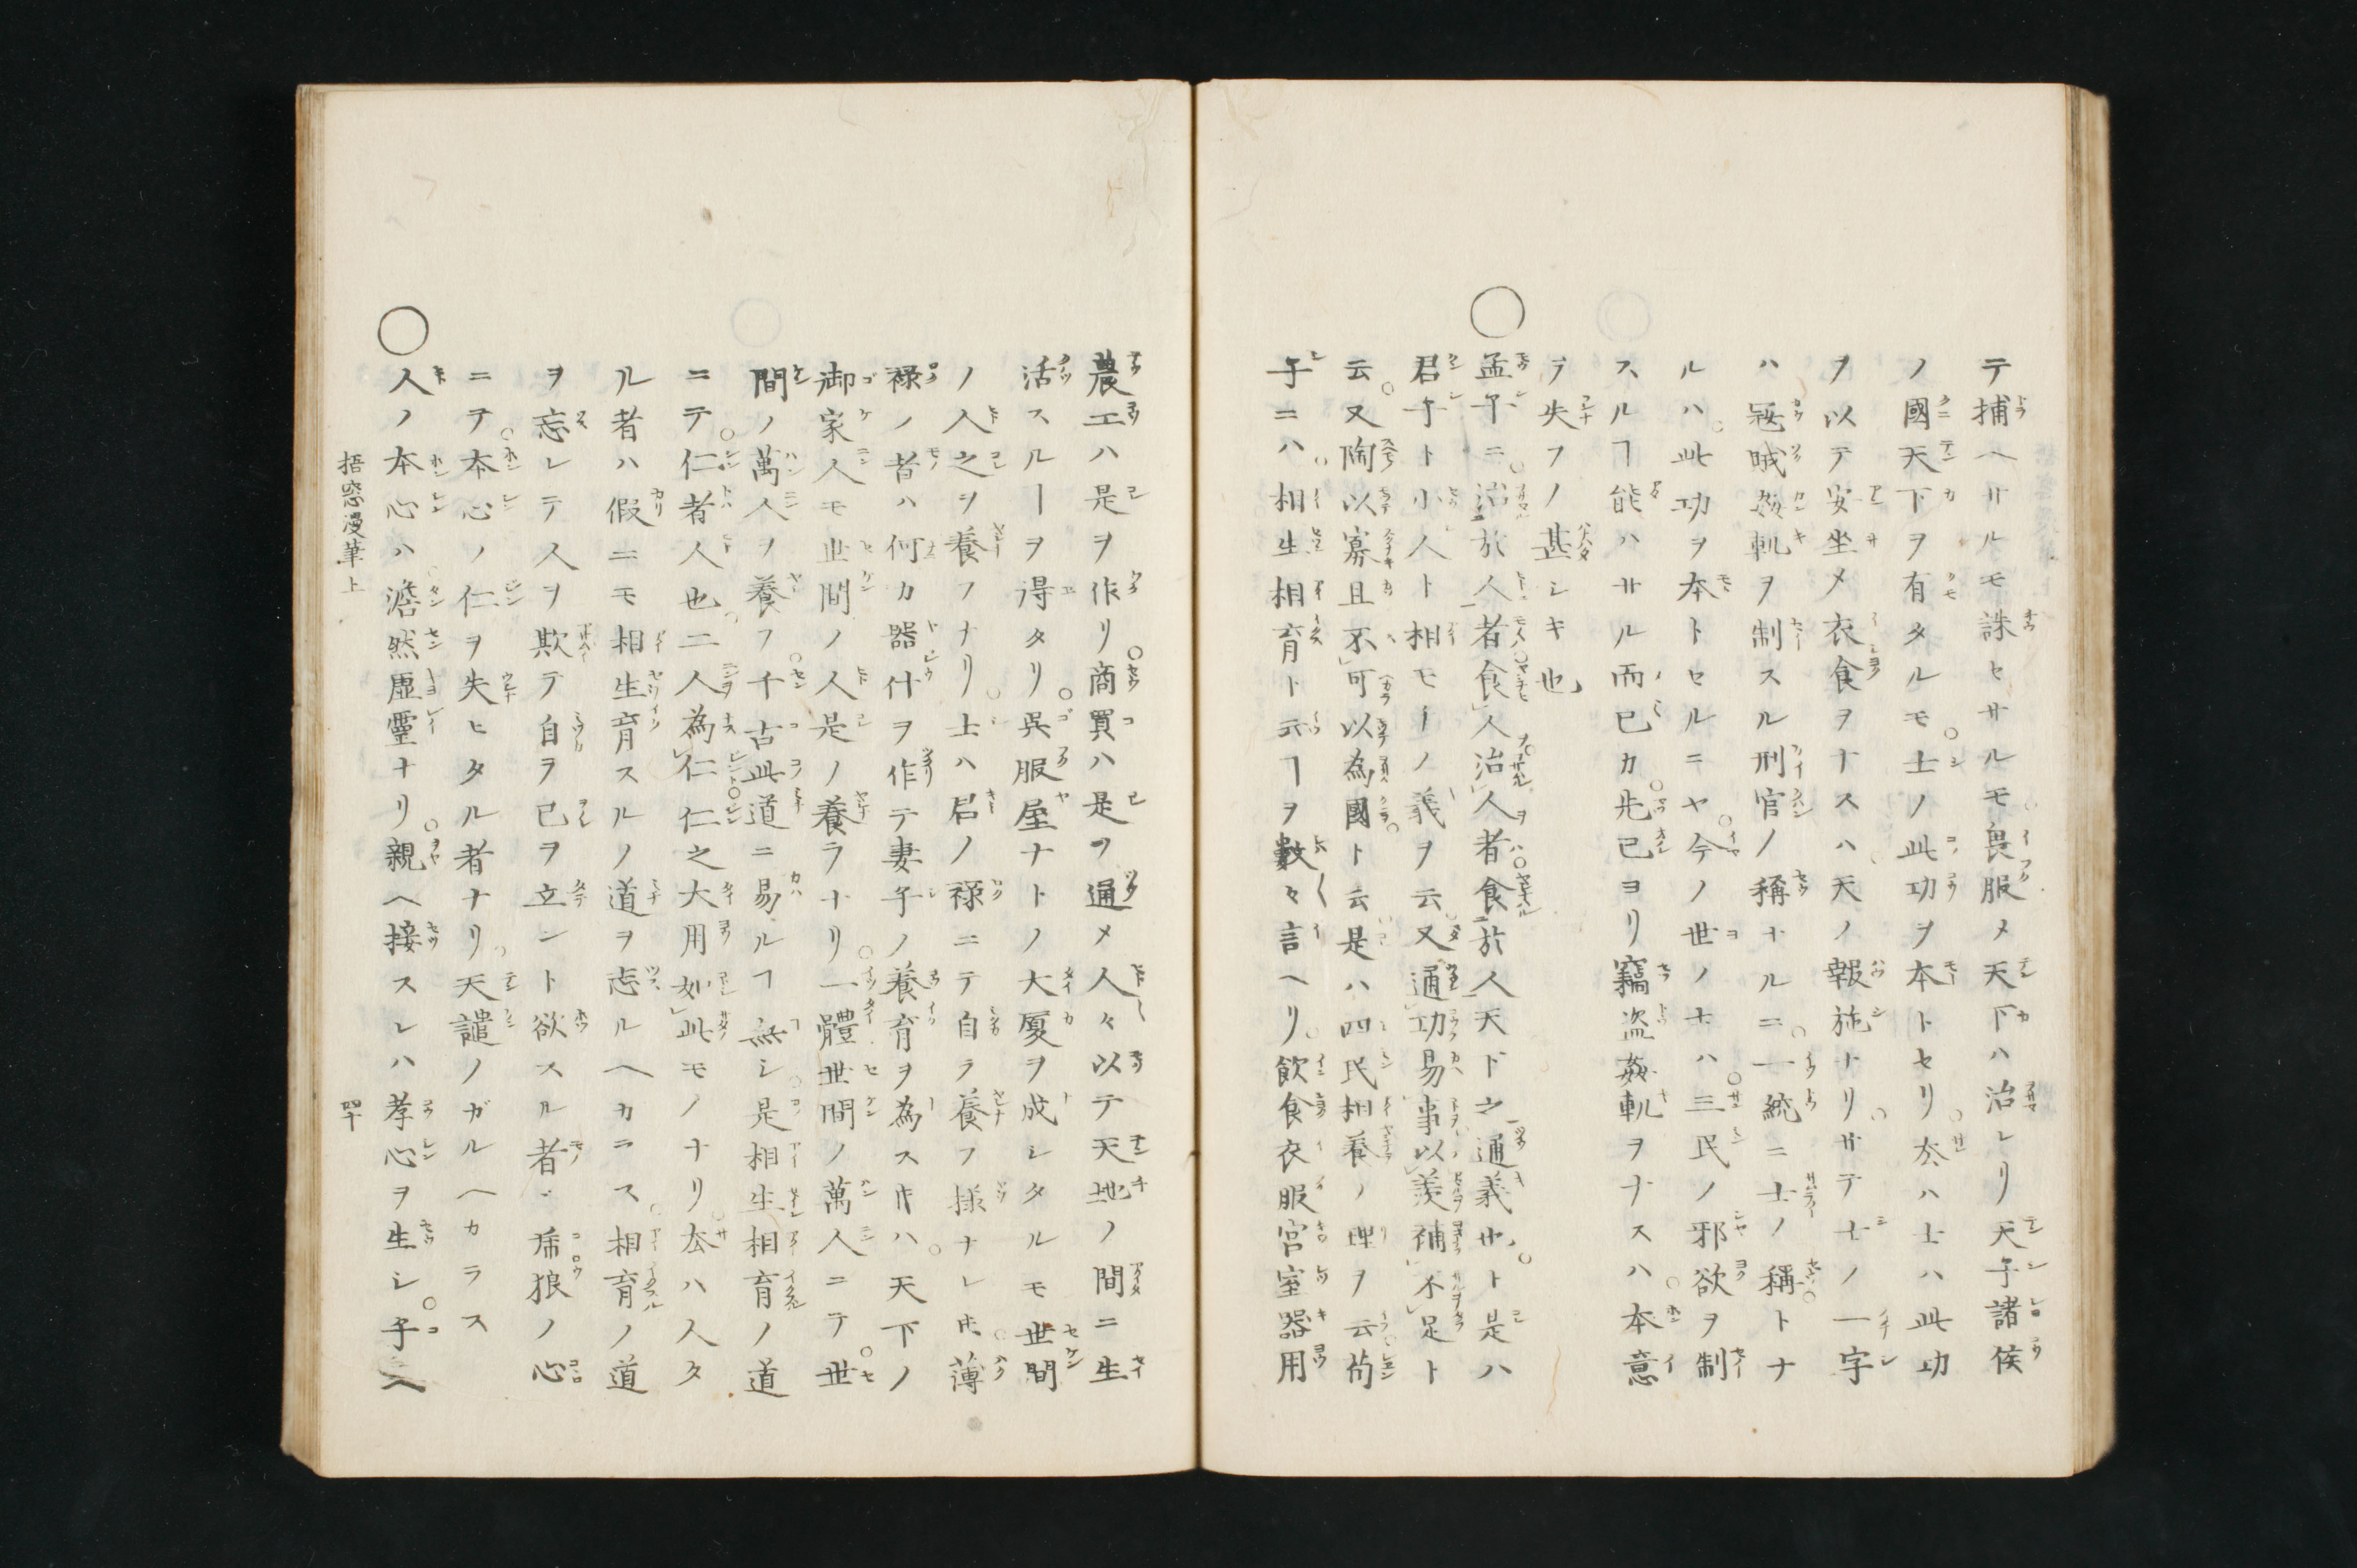 テ捕ヘサルモ誅セサルモ畏服メ天下ハ治レリ天子諸侯
ノ國天下ヲ有タルモ士ノ此功ヲ本トセリ夳ハ士ハ此功
ヲ以テ安坐メ衣食ヲナスハ天ノ報施ナリサテ士ノ一字
ハ冦賊姦軌ヲ制スル刑官ノ稱ナルニ一統ニ士ノ稱トナ
ルハ此功ヲ本トセルニヤ今ノ世ノ士ハ三民ノ邪欲ヲ制
スルヿ能ハサル而已カ先己ヨリ竊盗姦軌ヲナスハ本意
ヲ失フノ甚シキ也
○孟子ニ治於人者食人治人者食於人天下之通義也ト是ハ
君子ト小人ト相モーノ義ヲ云又通功易事以羨補不足ト
云又陶以寡且不可以為國ト云是ハ四民相養ノ理ヲ云荀
子ニハ相生相育ト云ヿヲ數々言ヘリ飲食衣服宮室器用
農工ハ是ヲ作リ商買ハ是ヲ通メ人々以テ天地ノ間ニ生
活スルーヲ得タリ呉服屋ナトノ大厦ヲ成シタルモ世間
ノ人之ヲ養フナリ士ハ君ノ禄ニテ自ラ養フ様ナレ𪜈薄
禄ノ者ハ何カ器什ヲ作テ妻子ノ養育ヲ為ス𬼀ハ天下ノ
御家人モ世間ノ人是ノ養ラナリ一體世間ノ萬人ニテ世
間ノ萬人ヲ養フ千古此道ニ易ルヿ無シ是相生相育ノ道
ニテ仁者人也二人為仁仁之大用如此モノナリ夳ハ人タ
ル者ハ假ニモ相生育スルノ道ヲ忘ルヘカラス相育ノ道
ヲ忘レテ人ヲ欺テ自ラ己ヲ立ント欲スル者ハ乕狼ノ心
ニテ本心ノ仁ヲ失ヒタル者ナリ天譴ノガルヘカラス
○人ノ本心ハ澹然虚靈ナリ親ヘ接スレハ孝心ヲ生シ子ヘ
梧窓漫筆上
四十